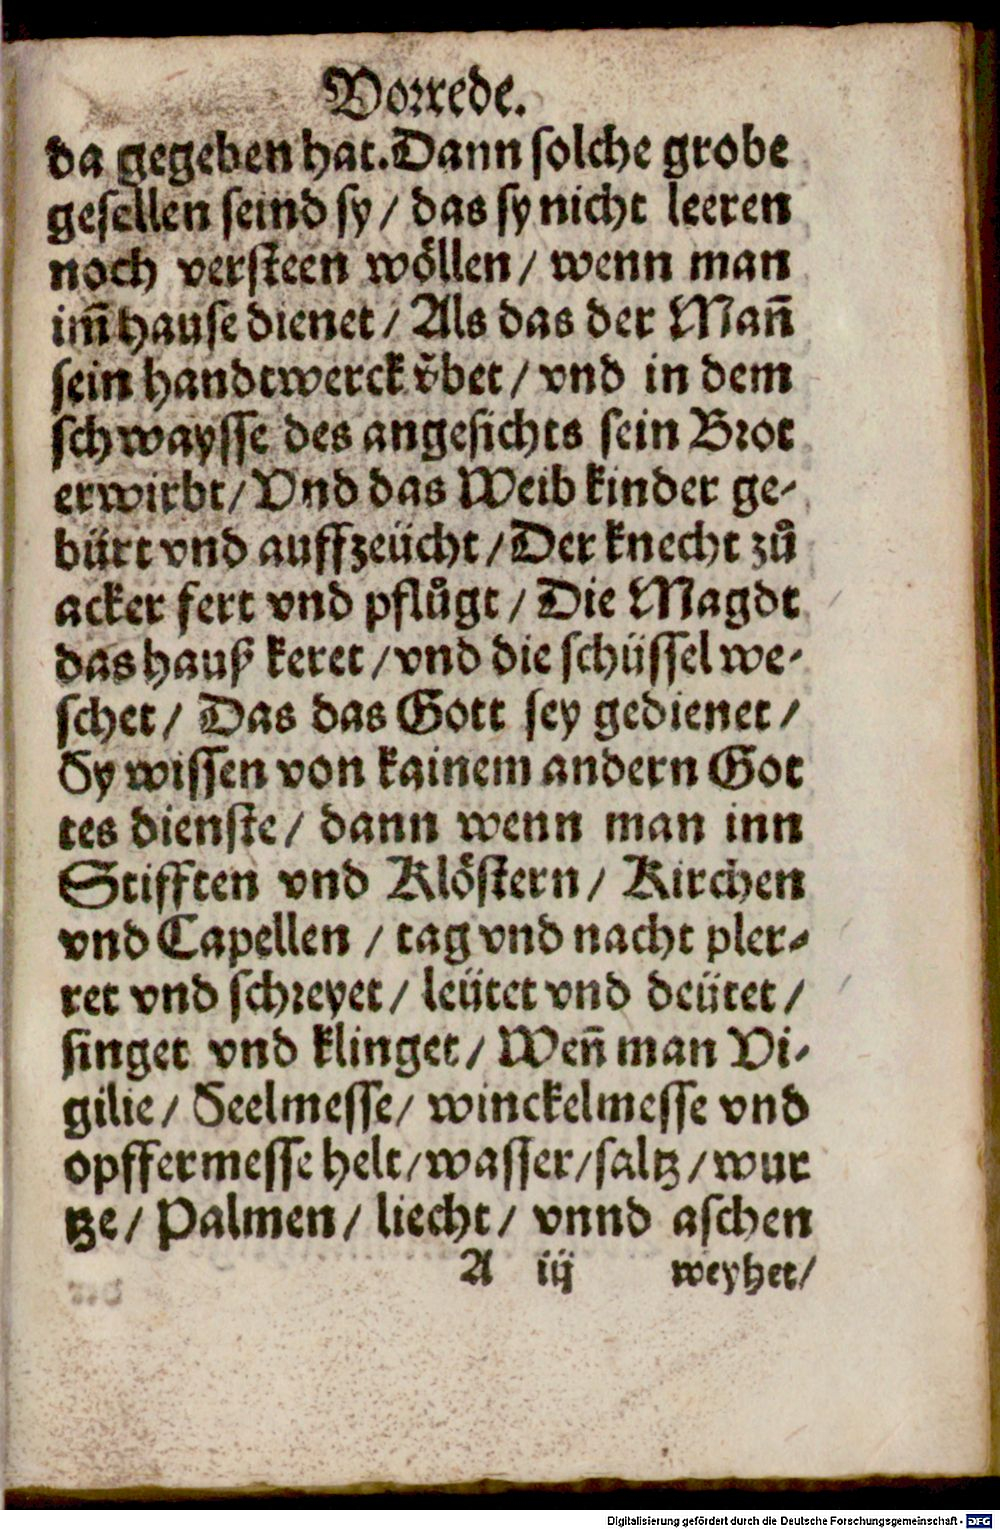 Vorrede.
da gegeben hat. Dann solche grobe
gesellen seind sy / das sy nicht leeren
noch versteen wöllen / wenn man
im̄ hause dienet / Als das der Man̄
sein handtwerck v̊bet / vnd in dem
schwaysse des angesichts sein Brot
erwirbt / Vnd das Weib kinder ge-
bürt vnd auffzeücht / Der knecht zů
acker fert vnd pflůgt / Die Magdt
das hauß keret / vnd die schüssel we-
schet / Das das Gott sey gedienet /
Sy wissen von kainem andern Got
tes dienste / dann wenn man inn
Stifften vnd Klöstern / Kirchen
vnd Capellen / tag vnd nacht pler-
ret vnd schreyet / leütet vnd deütet /
singet vnd klinget / Wen̄ man Vi-
gilie / Seelmesse / winckelmesse vnd
opffermesse helt / wasser / saltz / wur
tze / Palmen / liecht / vnnd aschen
A iij weyhet /
Digitalisierung gefördert durch die Deutsche Forschungsgemeinschaft - DFG